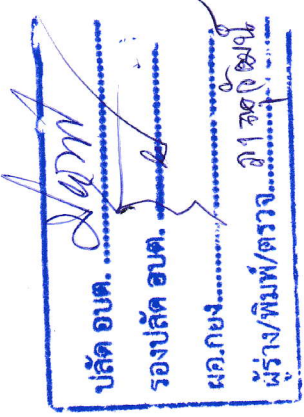 ปลัด อบต. ..........
รองปลัด อบต. ..........
ผอ.กอง ..........
ผู้ร่าง/พิมพ์/ตรวจ ..........